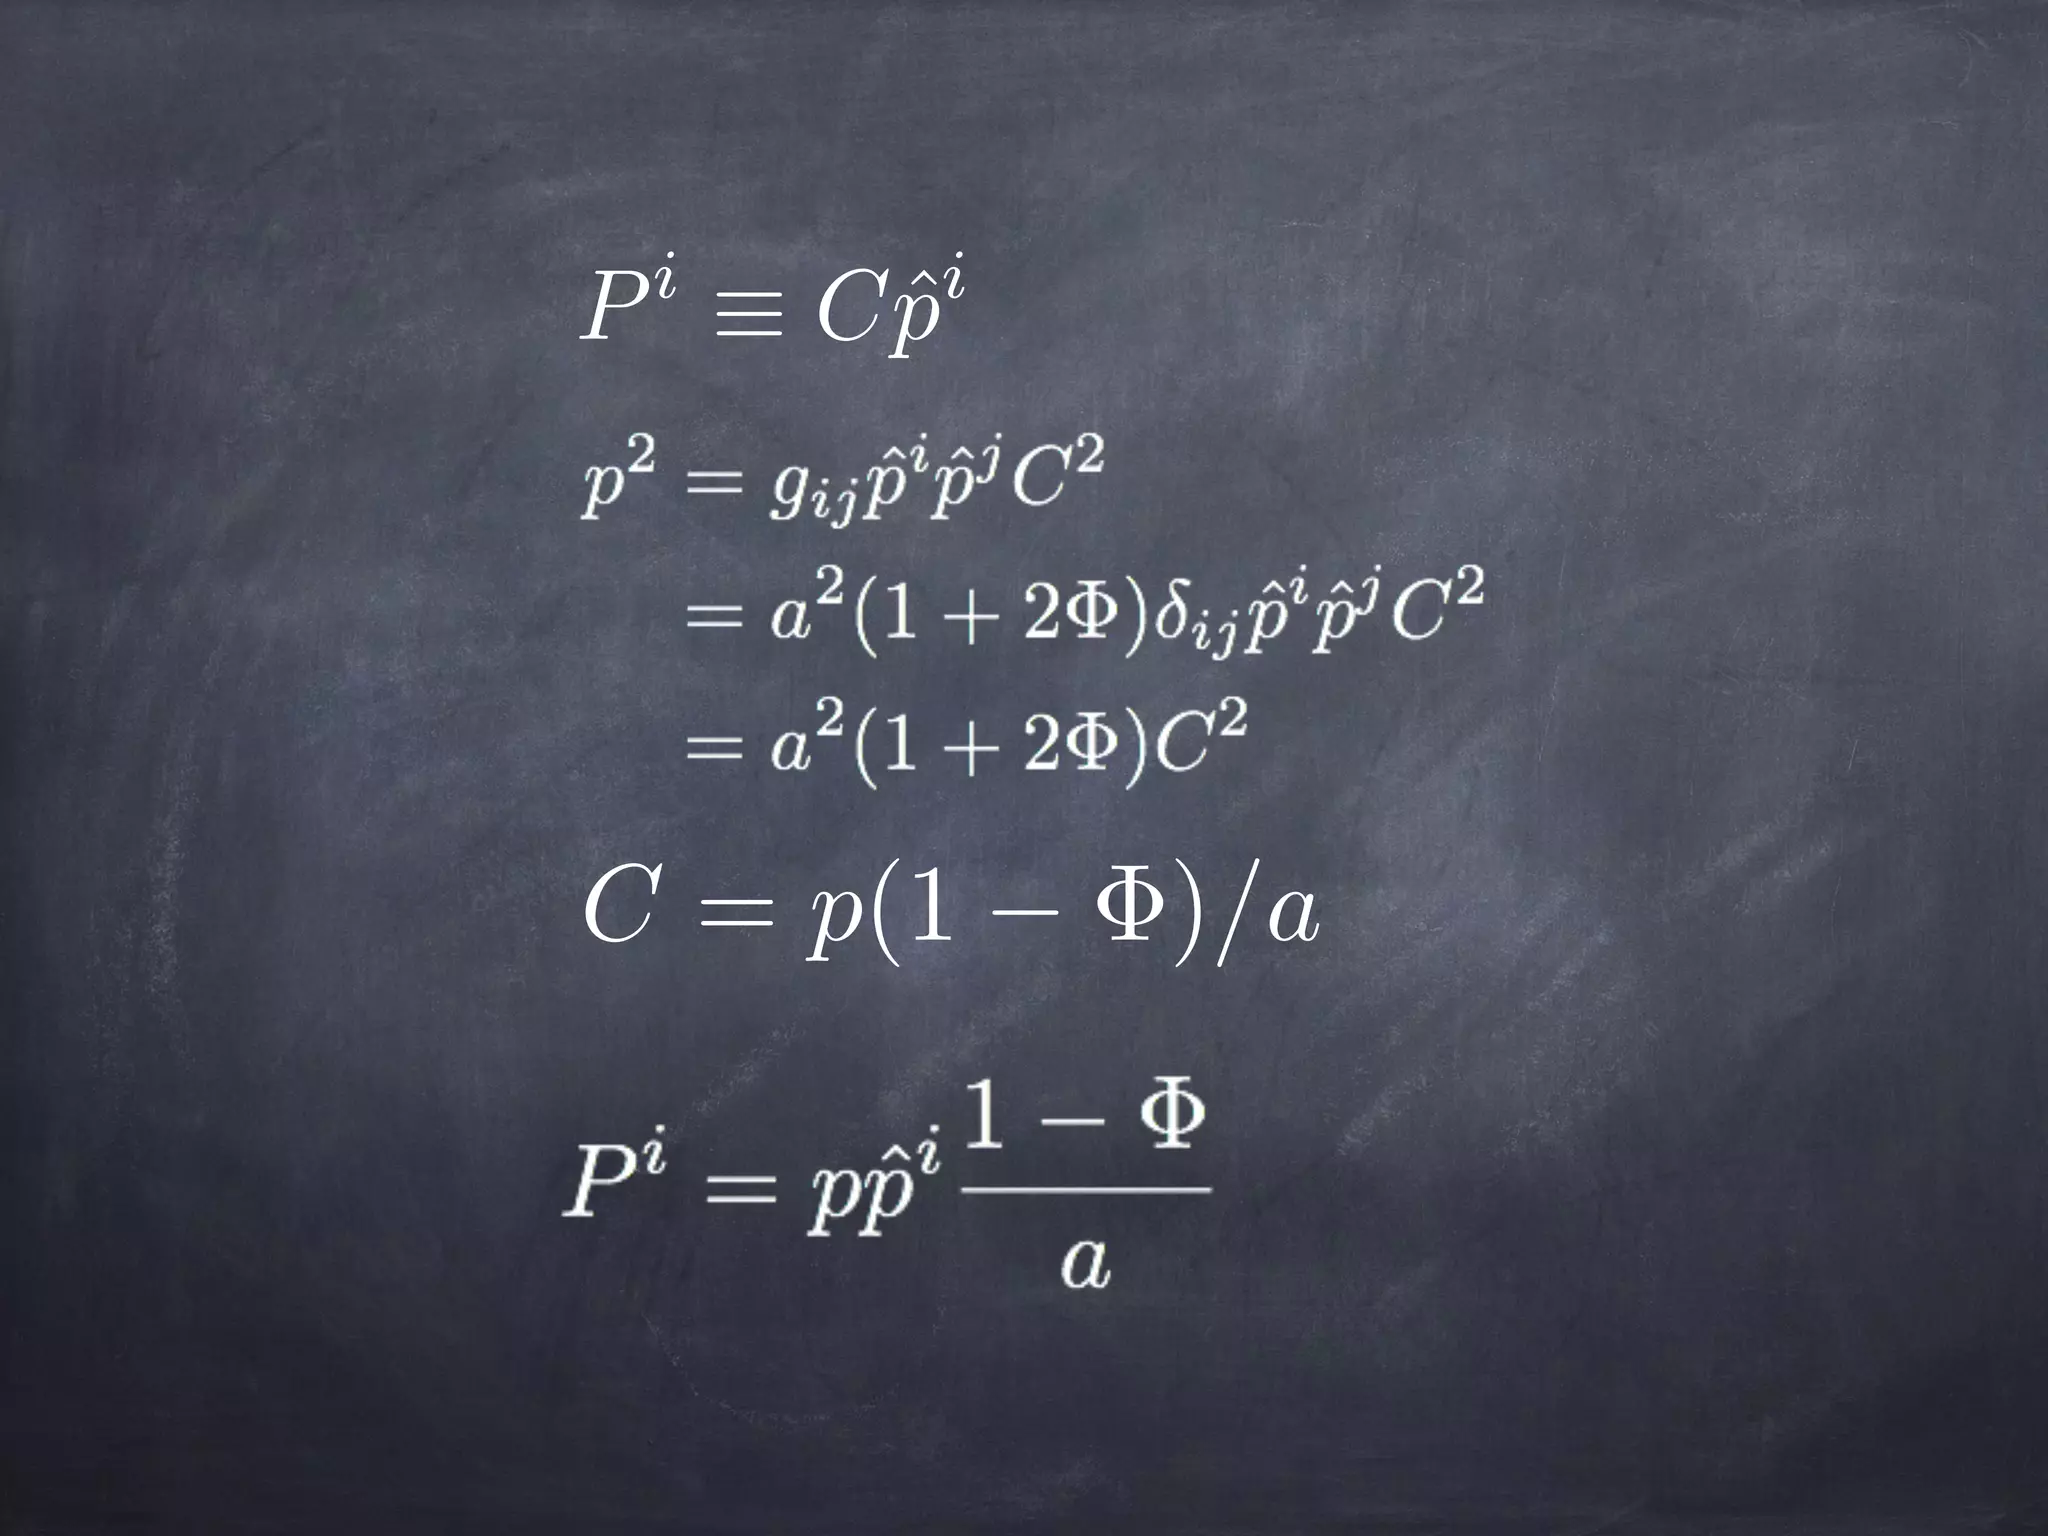 $P^i \equiv C\hat{p}^i$
$p^2 = g_{ij}\hat{p}^i\hat{p}^jC^2$
$= a^2(1 + 2\Phi)\delta_{ij}\hat{p}^i\hat{p}^jC^2$
$= a^2(1 + 2\Phi)C^2$
$C = p(1 - \Phi)/a$
$P^i = p\hat{p}^i\frac{1 - \Phi}{a}$